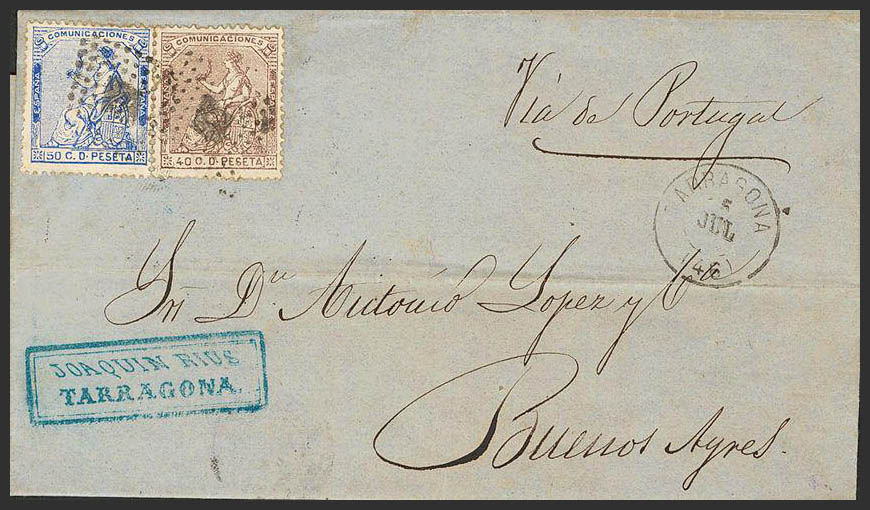 COMUNICACIONES
ESPAÑA
ESPAÑA
50 C. D. PESETA
COMUNICACIONES
40 C. D. PESETA
Via de Portugal
TARRAGONA
5
JUL
Sr. Dn. Antonio Lopez y Ca
JOAQUIN RIUS
TARRAGONA.
Buenos Ayres.